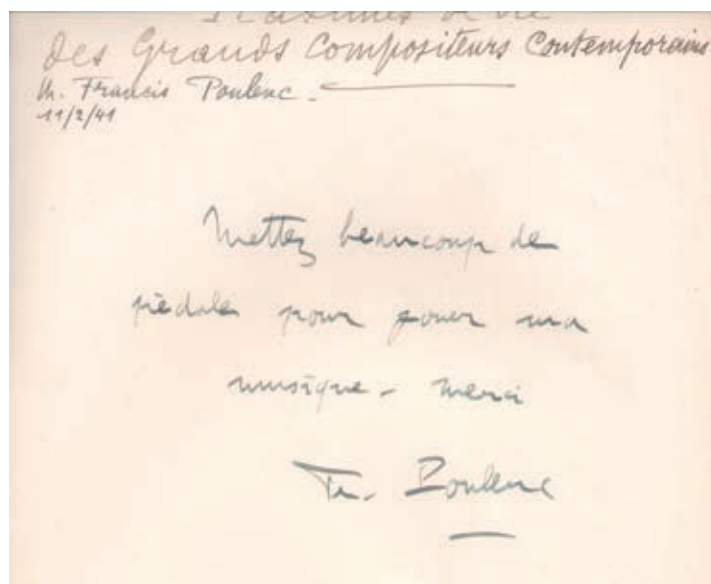 des Grands Compositeurs Contemporains
M. Francis Poulenc -
11/2/41
Mettez beaucoup de
pédale pour jouer ma
musique - merci
Fr. Poulenc